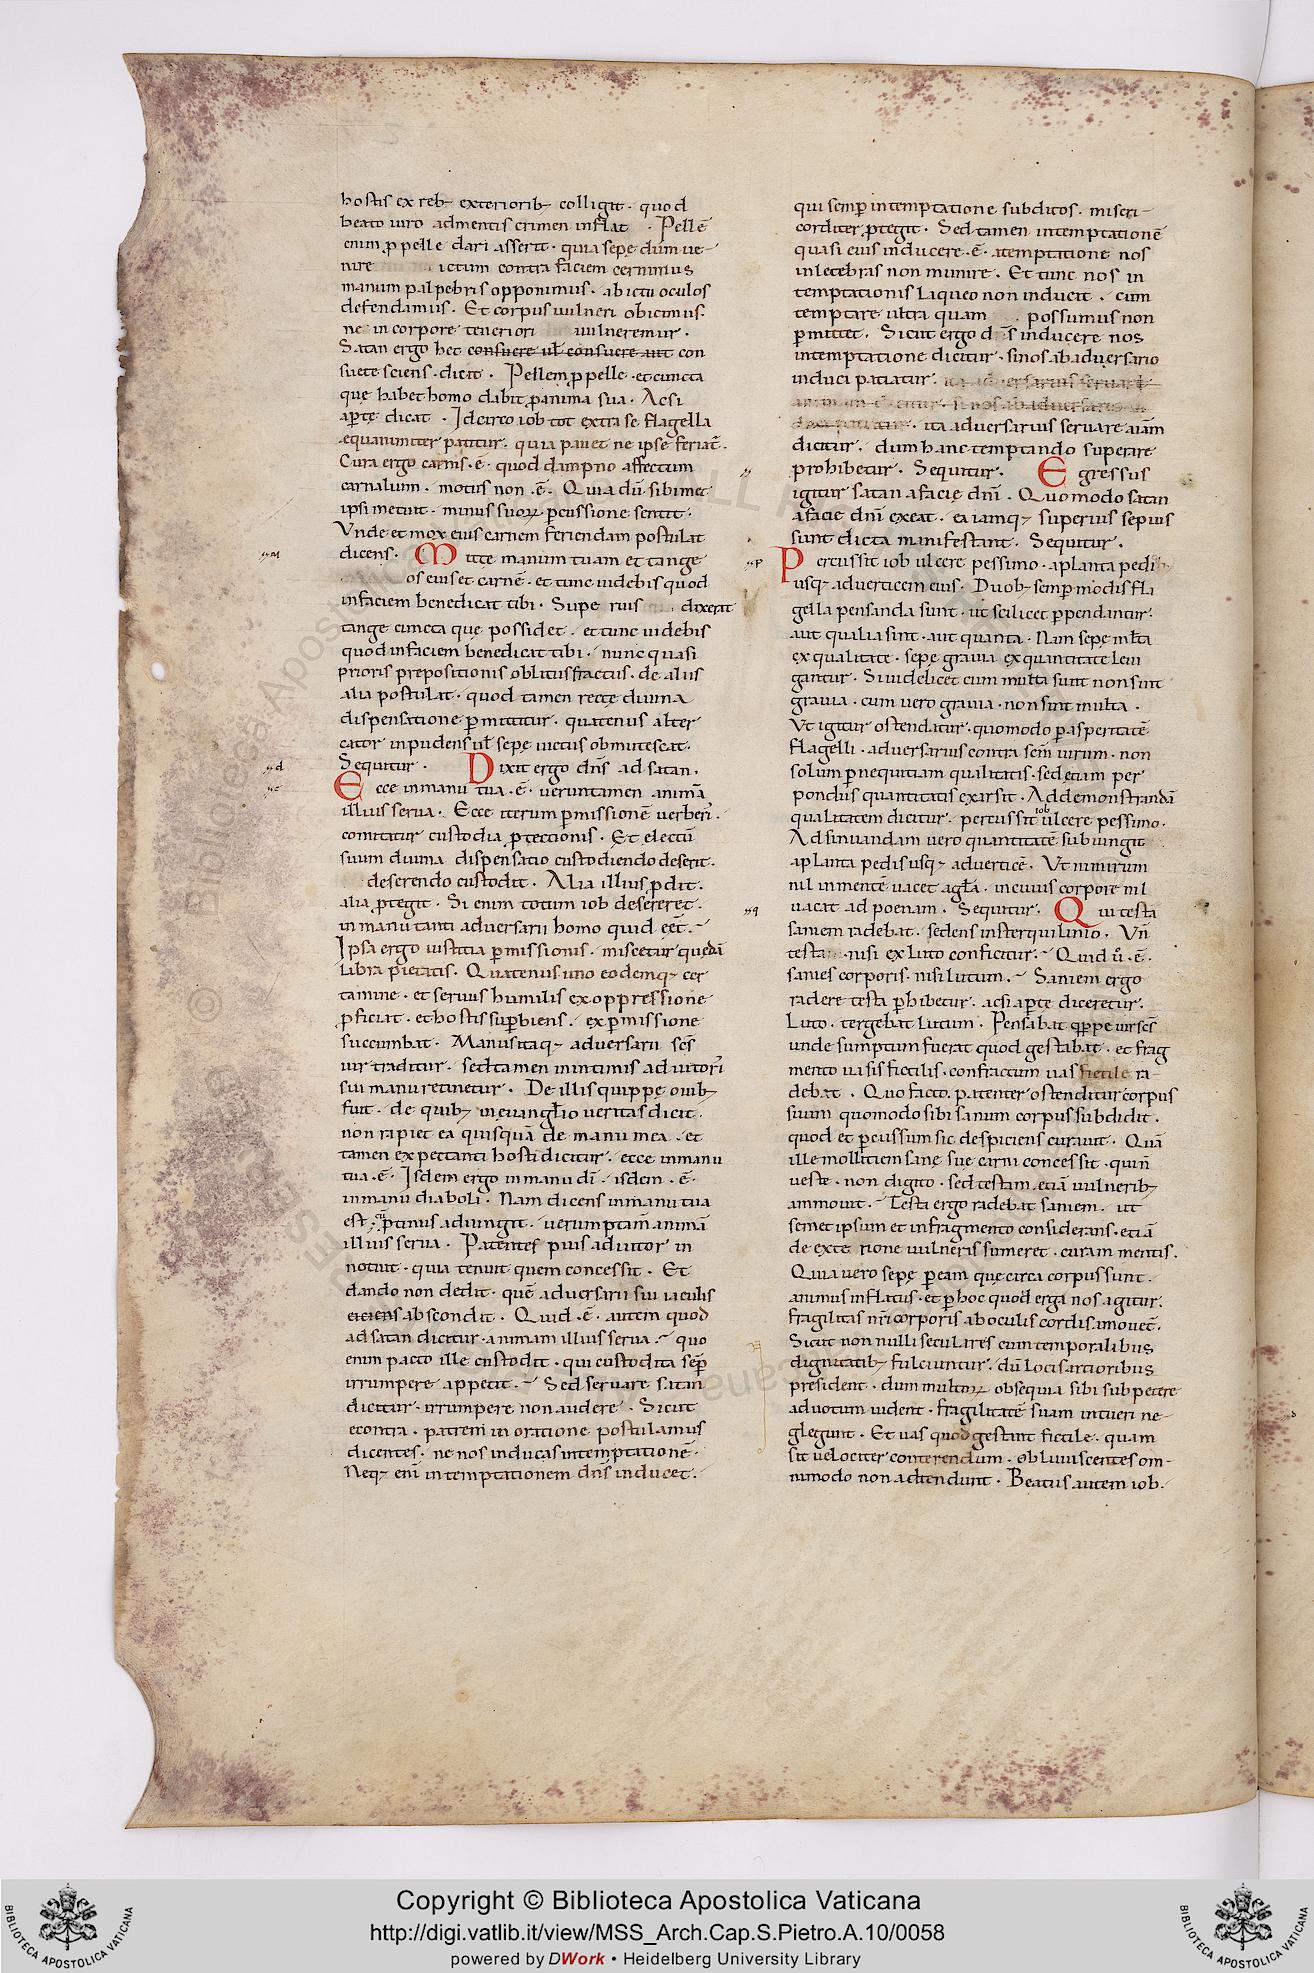 hostis ex reb; exteriorib; colligit · quod
beato uiro admentis crimen inflat · Pellē
enim p pelle dari asserit · quia sepe dum ue-
nire ictum contra faciem cernimus
manum palpebris opponimus · ab ictu oculos
defendamus · Et corpus uulneri obicimus ·
ne in corpore teneriori uulneremur ·
Satan ergo hec consuere ul consuere aut con
suete sciens · dicit · Pellem p pelle · et cuncta
que habet homo dabit panima sua · Acsi
apte dicat · Idcirco iob tot extra se flagella
equanimiter patitur · quia pauet ne ipse feriat ·
Cura ergo carnis · ē · quod dampno affectum
carnalium · motus non · ē · Quia dū sibimet
ipsi metuit · minus suoꝝ pcussione sentit ·
Vnde et mox eius carnem feriendam postulat
dicens · Mitte manum tuam et tange
os eius et carnē · et tunc uidebis quod
infaciem benedicat tibi · Supe rius dixerat
tange cuncta que possidet · et tunc uidebis
quod infaciem benedicat tibi · nunc quasi
prioris prepositionis oblitus fractus · de aliis
alia postulat · quod tamen recte diuina
dispensatione pmittitur · quatenus alter
cator inpudens ul sepe uictus obmutescat ·
Sequitur · Dixit ergo dns ad satan ·
Ecce in manu tua · ē · ueruntamen animā
illius serua · Ecce iterum pmissionē uberi ·
comitatur custodia ptectionis · Et electū
suum diuina dispensatio custodiendo deserit ·
deserendo custodit · Alia illius pdit ·
alia ptegit · Si enim totum iob desereret ·
in manu tanti aduersarii homo quid eēt ·
Ipsa ergo iustitia pmissionis · miscetur quedā
libra pietatis · Quatenus uno eodemq; cer
tamine · et seruus humilis ex oppressione
pficiat · et hostis supbiens · ex pmissione
succumbat · Manus itaq; aduersarii scs
uir traditur · sed tamen inintimis adiutori
sui manu retinetur · De illis quippe ouib;
fuit · de quib; ineuanglio ueritas dicit ·
non rapiet ea quisquā de manu mea · et
tamen expetanti hosti dicitur · ecce inmanu
tua · ē · Isdem ergo inmanu dī · isdem · ē ·
in manū diaboli · Nam dicens inmanu tua
est · ptinus adiungit · uerumptam animā
illius serua · Patentes pius adiutor in
notuit · quia tenuit quem concessit · Et
dando non dedit · quē aduersarii sui iaculis
eiciens abscondit · Quid · ē · autem quod
ad satan dicitur · animam illius serua · quo
enim pacto ille custodit · qui custodita sep
irrumpere appetit · Sed seruare satan
dicitur · irrumpere non audere · Sicut
econtra · patrem in oratione postulamus
dicentes · ne nos inducas intemptationē ·
Neq; eni in temptationem dns inducet ·
qui semp intemptatione subditos · miseri-
corditer ptegit · Sed tamen intemptationē
quasi eius inducere · ē · atemptatione nos
inlecebras non munire · Et tunc nos in
temptationis laqueo non inducit · cum
temptare ultra quam possumus non
pmittet · Sicut ergo ds inducere nos
intemptatione dicitur · sinos ab aduersario
induci patiatur · ita aduersarius seruare
si nos ab aduersario in
duci patiatur · ita aduersarius seruare aīam
dicitur · dum hanc temptando superare
prohibetur · Sequitur · Egressus
igitur satan afacie dnī · Quomodo satan
afacie dnī exeat · ea iamq; superius sepius
sunt dicta manifestant · Sequitur ·
Percussit iob ulcere pessimo · aplanta pedi
usq; aduerticem eius · Duob; semp modis fla
gella pensanda sunt · ut scilicet ppendantur ·
aut qualia sint · aut quanta · Nam sepe mlta
ex qualitate · sepe grauia ex quantitate leui
gantur · Si uidelicet cum multa sunt non sunt
grauia · cum uero grauia · non sint multa ·
Vt igitur ostendatur · quomodo p aspertatē
flagelli · aduersarius contra scm uirum · non
solum p nequitiam qualitatis · sed etiam per
pondus quantitatis exarsit · Ad demonstrandā
qualitatem dicitur · percussit iob ulcere pessimo ·
Ad sinuandam uero quantitatē subiungit
aplanta pedis usq; aduerticē · Vt nimirum
nil inmente uacet agla · incuius corpore nil
uacat ad poenam · Sequitur · Qui testa
saniem radebat · sedens insterquilinio · Vn
testa · nisi ex luto conficitur · Quid ů · ē ·
sanies corporis · nisi lutum · Saniem ergo
radere testa phibetur · acsi apte diceretur ·
Luto · tergebat lutum · Pensabat qppe uir scs
unde sumptum fuerat quod gestabat · et frag
mento uasis fictilis · confractum uas fictile ra-
debat · Quo facto · patenter ostenditur corpus
suum quomodo sibi sanum corpus subdidit ·
quod et pcussum sic despiciens curauit · Quā
ille mollitiem sane sue carni concessit · qui n
ueste · non digito · sed testam · etiā uulnerib;
ammouit · Testa ergo radebat saniem · ut
semet ipsum et in fragmento considerans · etiā
de exte rione uulneris sumeret · curam mentis ·
Quia uero sepe p eam que circa corpus sunt ·
animus inflatus · et p hoc quod erga nos agitur ·
fragilitas nri corporis ab oculis cordis amouet ·
Sicut non nulli seculares cum temporalibus
dignitatib; fulciuntur · dū locis artioribus
president · dum multoꝝ obsequia sibi subpetere
aduotum uident · fragilitatē suam intueri ne-
glegunt · Et uas quod gestant fictile · quam
sit uelociter conterendum · obliuiscentes om-
nimodo non adtendunt · Beatus autem iob ·
Copyright © Biblioteca Apostolica Vaticana
http://digi.vatlib.it/view/MSS_Arch.Cap.S.Pietro.A.10/0058
powered by DWork • Heidelberg University Library